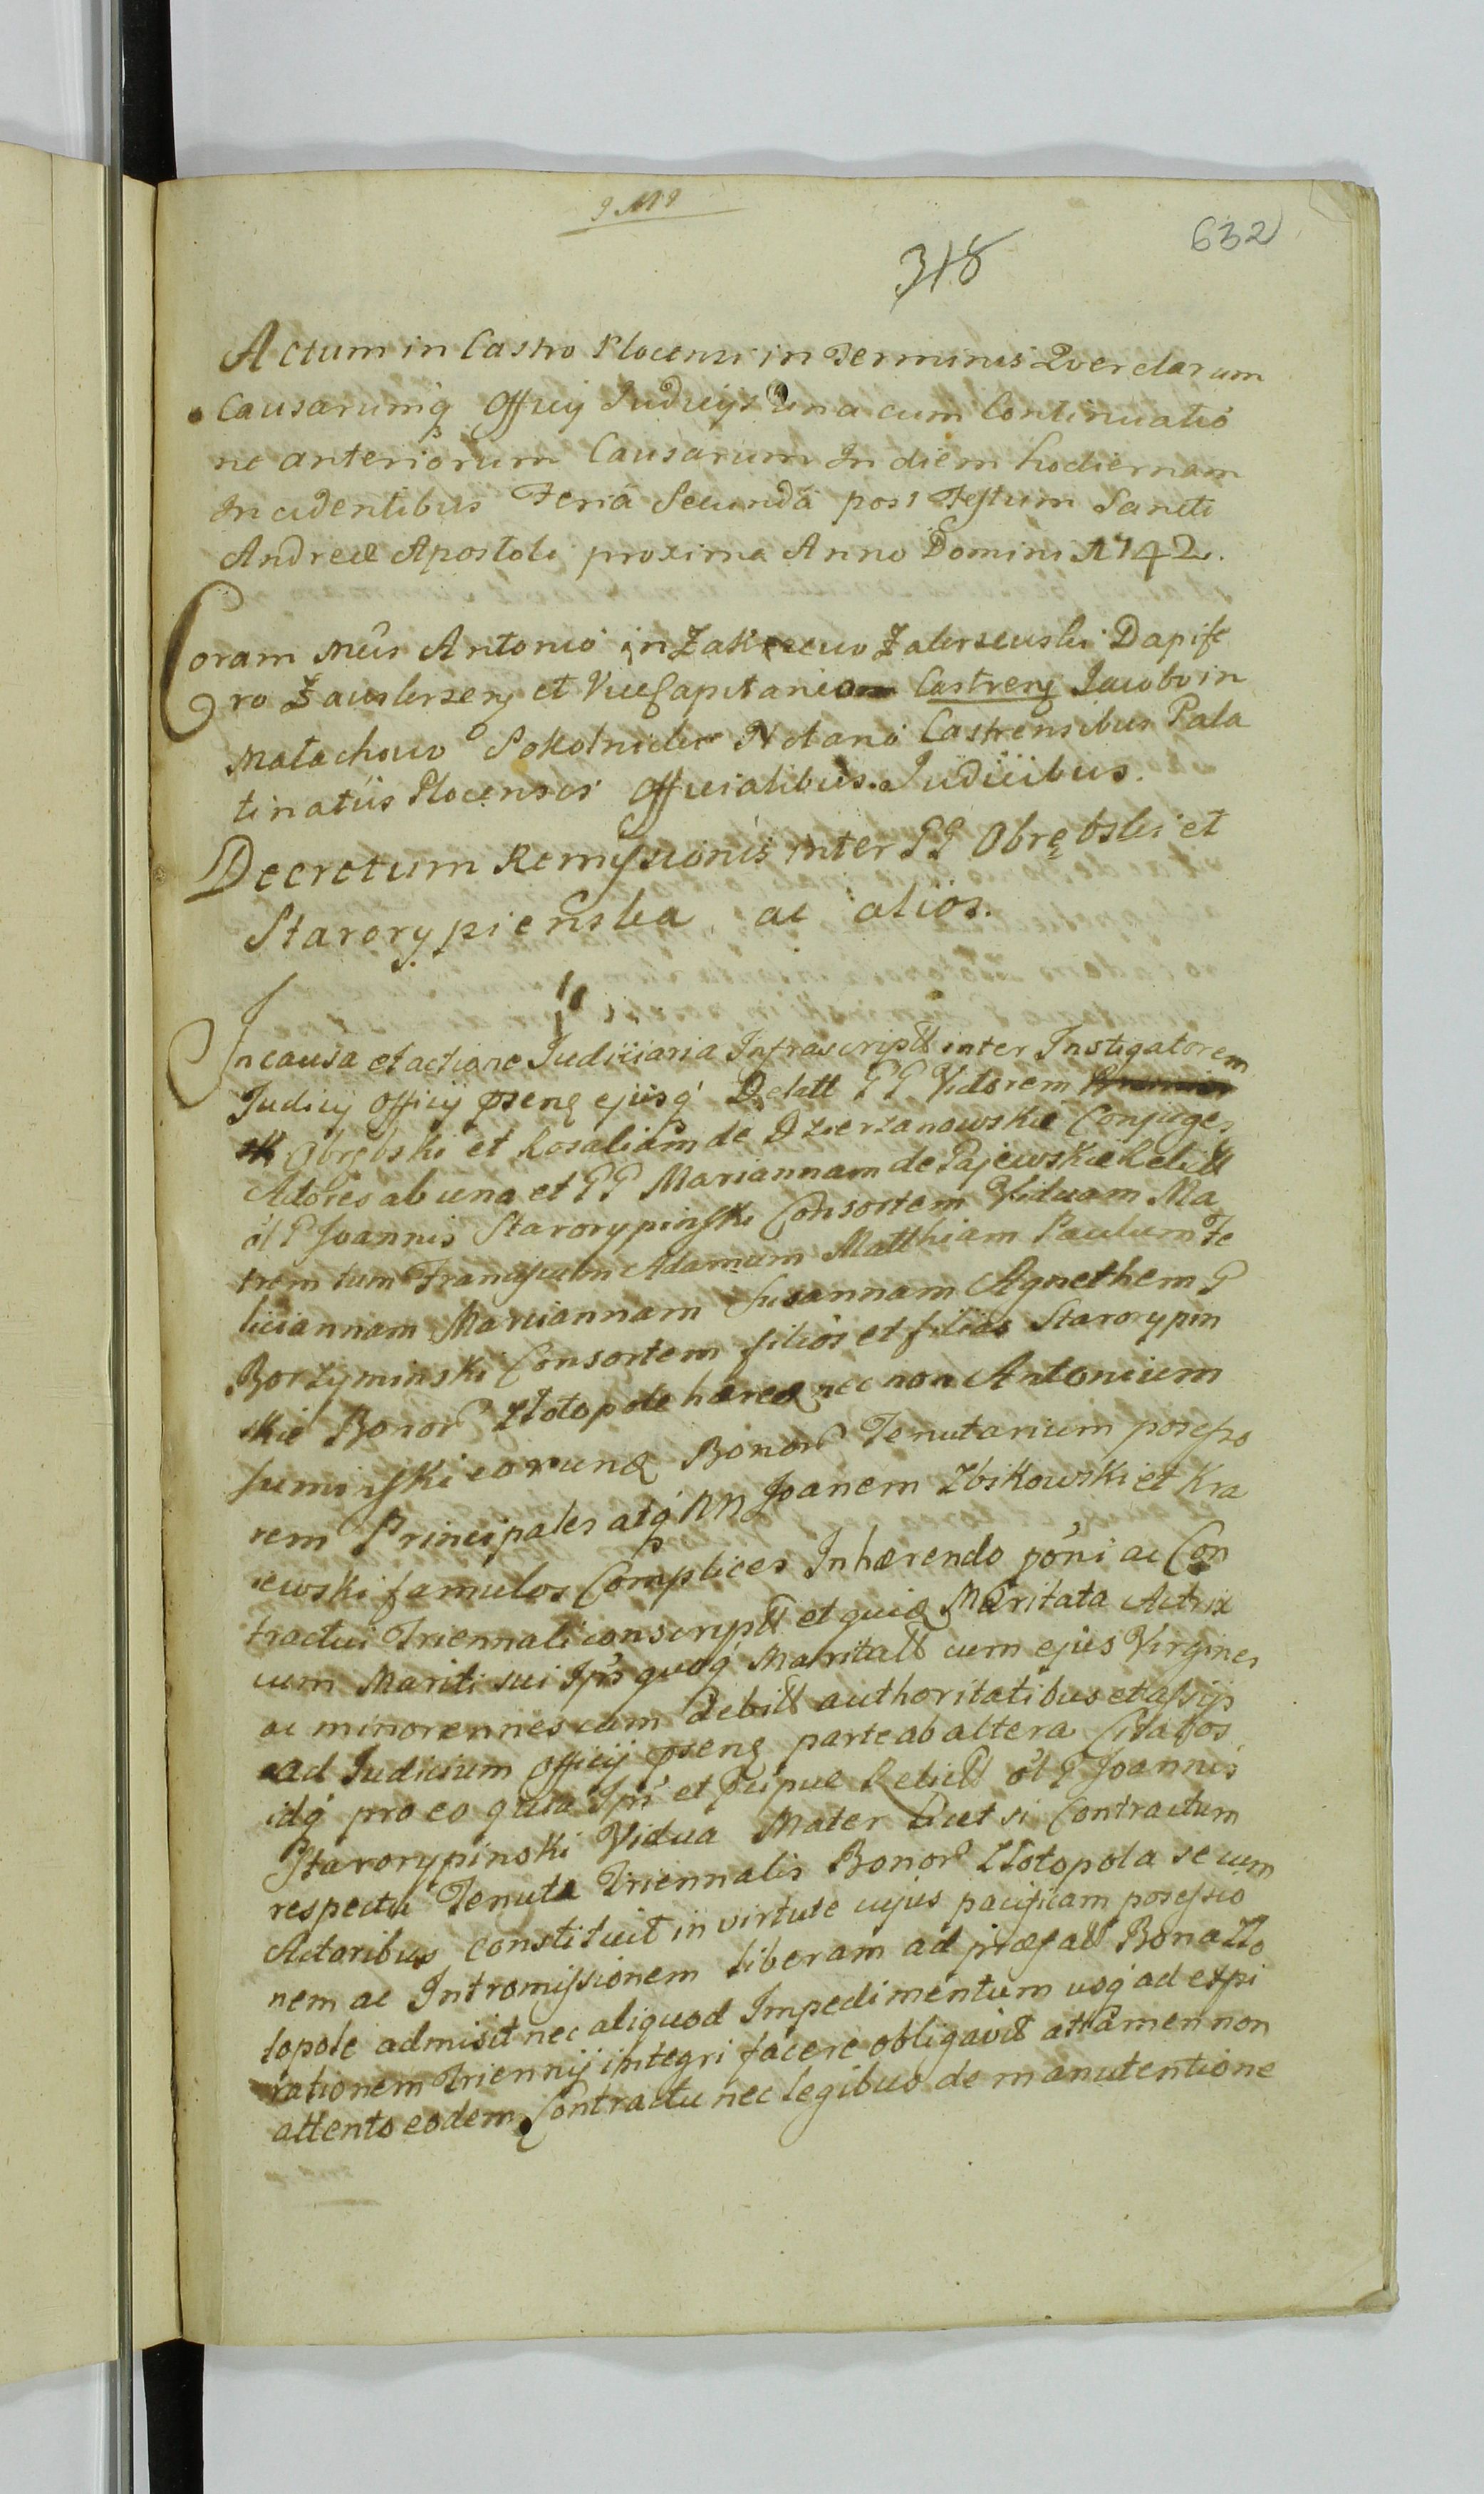 318
632
Actum in Castro Plocensi in Terminis Querelarum
Causarumq Officij Judicijs una cum Continuatio
ne anteriorum Causarum In diem hodiernam
Incidentibus Feria Secunda post Festum Sancti
Andreæ Apostoli proxima Anno Domini 1742.
Coram Antonio in Dapife
ro et ViceCapitaneo Castren Jacobo in
Małachowo Sokolnicki Notario Castrensibus Pala
tinatus Plocensis Officialibus Judicibus.
Decretum Remissionis inter GG Obrębski et
Starorypienska ac alios.
In causa et actione Judiciaria Infrascriptt inter Instigatorem
Judicij Officij psens ejusq Delatt GG Victorem
Obrębski et Rosaliam de Dzierzanowskie Conjuges
Actores ab una et GG Mariannam de Pajewskie Relictt
ol G Joannis Starorypinski Consortem Viduam Ma
trem tum Franciscum Adamum Matthiam Paulum Fe
liciannam Mariannam Susannam Agnethem G
Borzyminski Consortem filios et filias Starorypin
skie Bonor Złotopole hæred nec non Antonium
Suminski eorund Bonor Tenutarium possesso
rem Principales atq NN Joanem Zbikowski et Kra
iewski famulos Complices Inhærendo poni ac Con
tractui Triennali conscriptt et quid Maritata Actrix
cum Mariti sui Ipis quoq Maritatt cum ejus Virgines
ac minorennes cum debitt authoritatibus et assijs
ad Judicium Officij psens parte ab altera Citatos
idq pro eo quia Ipsi et Pcipue Relictt ol G Joannis
Starorypinski Vidua Mater licet si Contractum
respectu Tenuta Triennalis Bonor Złotopola se cum
Actoribus constituit in virtute cujus pacificam possessio
nem ac Intromissionem liberam ad præfatt Bona Zło
topole admisit nec aliquod Impedimentum usq ad expi
rationem Triennij integri facere obligavit attamen non
attento eodem Contractu nec legibus de manutentione